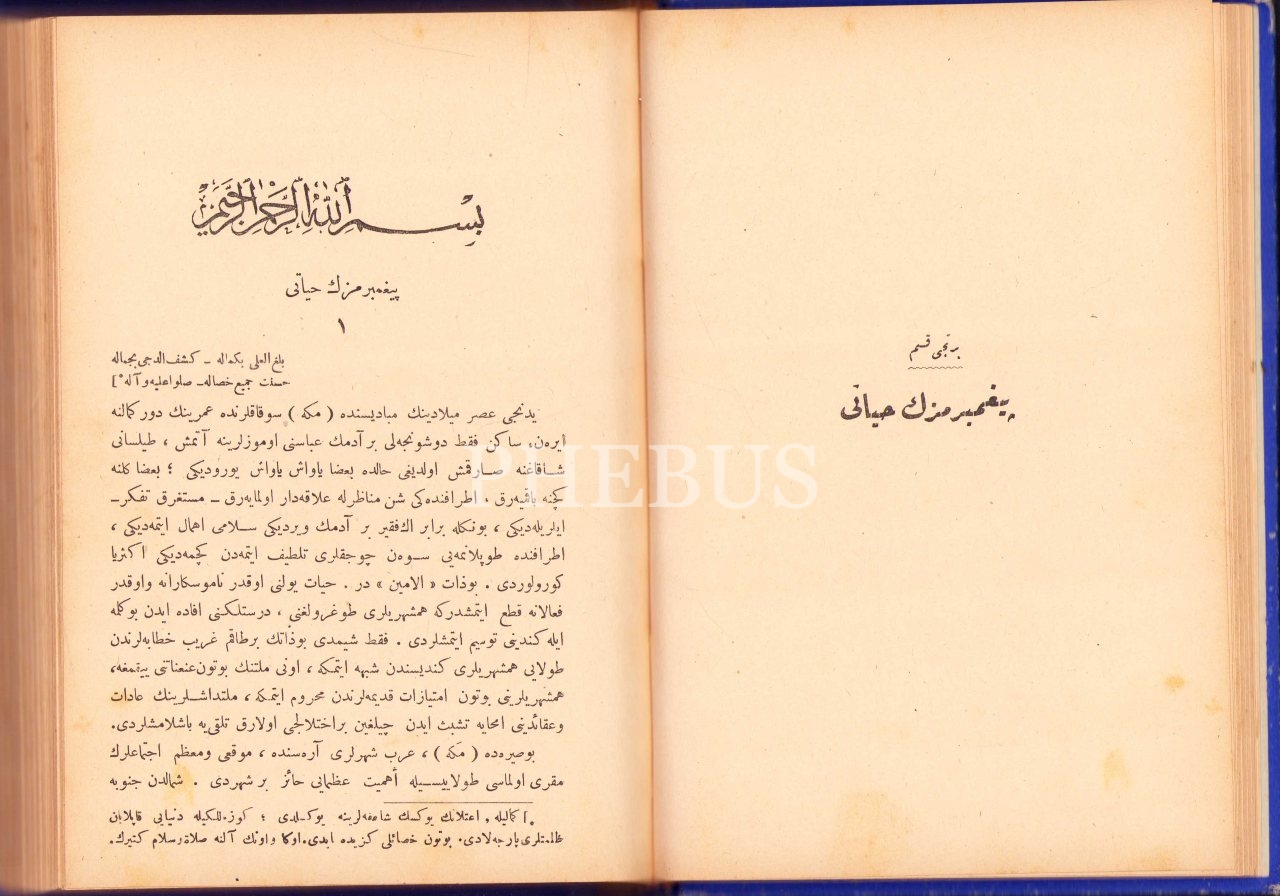 برنجی قسم
پیغمبرمزك حیاتی
بِسْمِ اللّٰهِ الرَّحْمٰنِ الرَّحِیمِ
پیغمبرمزك حیاتی
١
بلغ العلی بكماله ـ كشف الدجی بجماله
حسنت جمیع خصاله ـ صلوا علیه و آله [*]
یدنجی عصر میلادینك مبادیسنده ( مكه ) سوقاقلرنده عمرینك دور كمالنه
ایرەن، ساكن فقط دوشونجەلی بر آدمك عباسنی اوموزلرینه آتمش ، طیلسانی
شاقاغنه صارقمش اولدیغی حالده بعضا یاواش یاواش یورودیكی ؛ بعضا كلنه
كچنه باقمیەرق ، اطرافنده كی شن مناظرله علاقەدار اولمایەرق ـ مستغرق تفكر ـ
ایلریلەدیكی ، بونكله برابر اك فقیر بر آدمك ویردیكی سلامی اهمال ایتمەدیكی ،
اطرافنده طوپلانمەیی سوەن چوجقلری تلطیف ایتمەدن كچمەدیكی اكثریا
كورولوردی . بوذات « الامین » در . حیات یولنی اوقدر ناموسكارانه واوقدر
فعالانه قطع ایتمشدركه همشهریلری طوغرولغنی ، درستلكنی افاده ایدن بوكلمه
ایله كندینی توسیم ایتمشلردی . فقط شیمدی بوذاتك برطاقم غریب خطابەلرندن
طولایی همشهریلری كندیسندن شبهه ایتمكه ، اونی ملتنك بوتون عنعناتنی ییقمغه،
همشهریلرینی بوتون امتیازات قدیمەلرندن محروم ایتمكه ، ملتداشلرینك عادات
وعقائدینی امحایه تشبث ایدن چیلغین براختلالجی اولارق تلقی یه باشلامشلردی.
بوصیرەده ( مكه ) ، عرب شهرلری آرەسنده ، موقعی ومعظم اجتماعلرك
مقری اولماسی طولاییسیله أهمیت عظمایی حائز بر شهردی . شمالدن جنوبه
[*] كمالیله ، اعتلانك یوكسك شاهقەلرینه یوكسلدی ؛ كوزەللكیله دنیایی قاپلایان
ظلمتلری پارچەلادی. بوتون خصائلی كزیده ایدی. اوكا واونك آلنه صلاة وسلام كتیرك.
PHEBUS